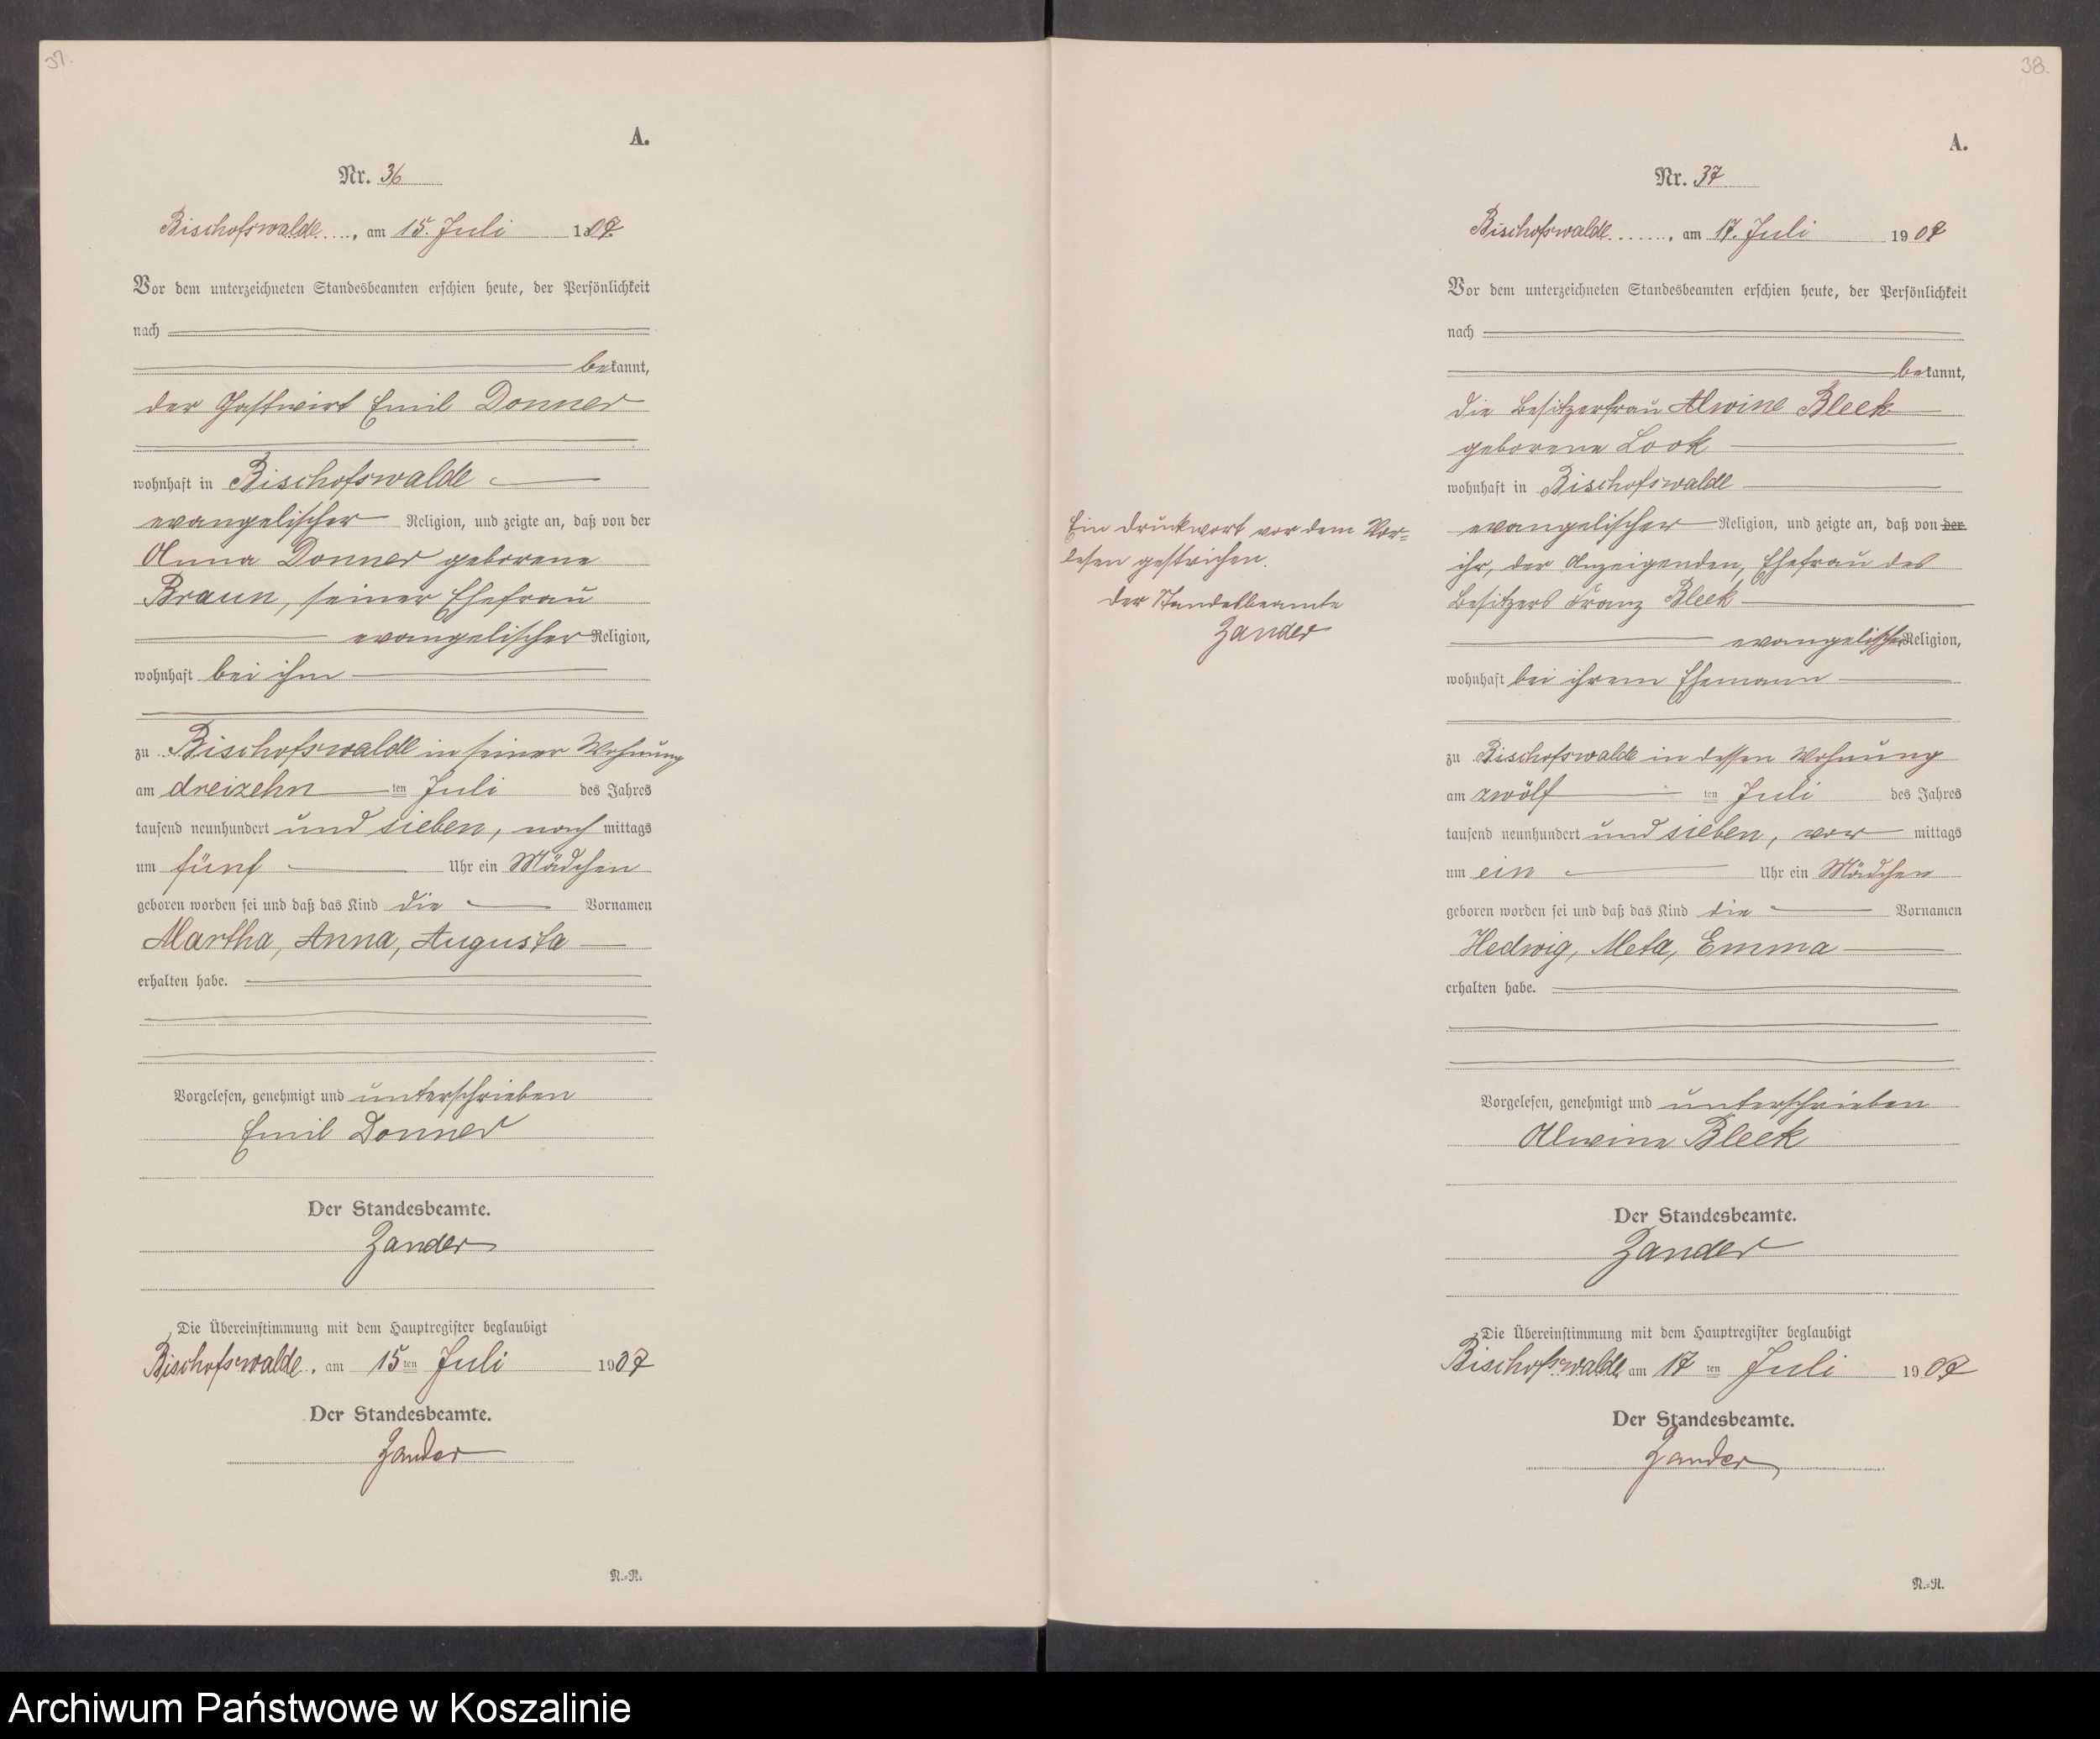 37.
A.
Nr. 36
Bischofswalde, am 15. Juli 1907.
Vor dem unterzeichneten Standesbeamten erschien heute, der Persönlichkeit
nach
bekannt,
der Gastwirt Emil Donner
wohnhaft in Bischofswalde
evangelischer Religion, und zeigte an, daß von der
Anna Donner geborene
Braun, seiner Ehefrau
evangelischer Religion,
wohnhaft bei ihm
zu Bischofswalde in seiner Wohnung
am dreizehn ten Juli des Jahres
tausend neunhundert und sieben, nach mittags
um fünf Uhr ein Mädchen
geboren worden sei und daß das Kind die Vornamen
Martha, Anna, Augusta
erhalten habe.
Vorgelesen, genehmigt und unterschrieben
Emil Donner
Der Standesbeamte.
Zander
Die Übereinstimmung mit dem Hauptregister beglaubigt
Bischofswalde, am 15ten Juli 1907
Der Standesbeamte.
Zander
N.=R.
38.
A.
Nr. 37
Bischofswalde, am 17. Juli 1907
Vor dem unterzeichneten Standesbeamten erschien heute, der Persönlichkeit
nach
bekannt,
die Besitzerfrau Alwine Bleek
geborene Look
wohnhaft in Bischofswalde
evangelischer Religion, und zeigte an, daß von der
ihr, der Anzeigenden, Ehefrau des
Besitzers Franz Bleek
evangelischer Religion,
wohnhaft bei ihrem Ehemann
zu Bischofswalde in dessen Wohnung
am zwölf ten Juli des Jahres
tausend neunhundert und sieben, vor mittags
um ein Uhr ein Mädchen
geboren worden sei und daß das Kind die Vornamen
Hedwig, Meta, Emma
erhalten habe.
Vorgelesen, genehmigt und unterschrieben
Alwine Bleek
Der Standesbeamte.
Zander
Die Übereinstimmung mit dem Hauptregister beglaubigt
Bischofswalde, am 17 ten Juli 1907
Der Standesbeamte.
Zander
N.=R.
Ein Druckwort vor dem Vor=
lesen gestrichen.
Der Standesbeamte
Zander
Archiwum Państwowe w Koszalinie